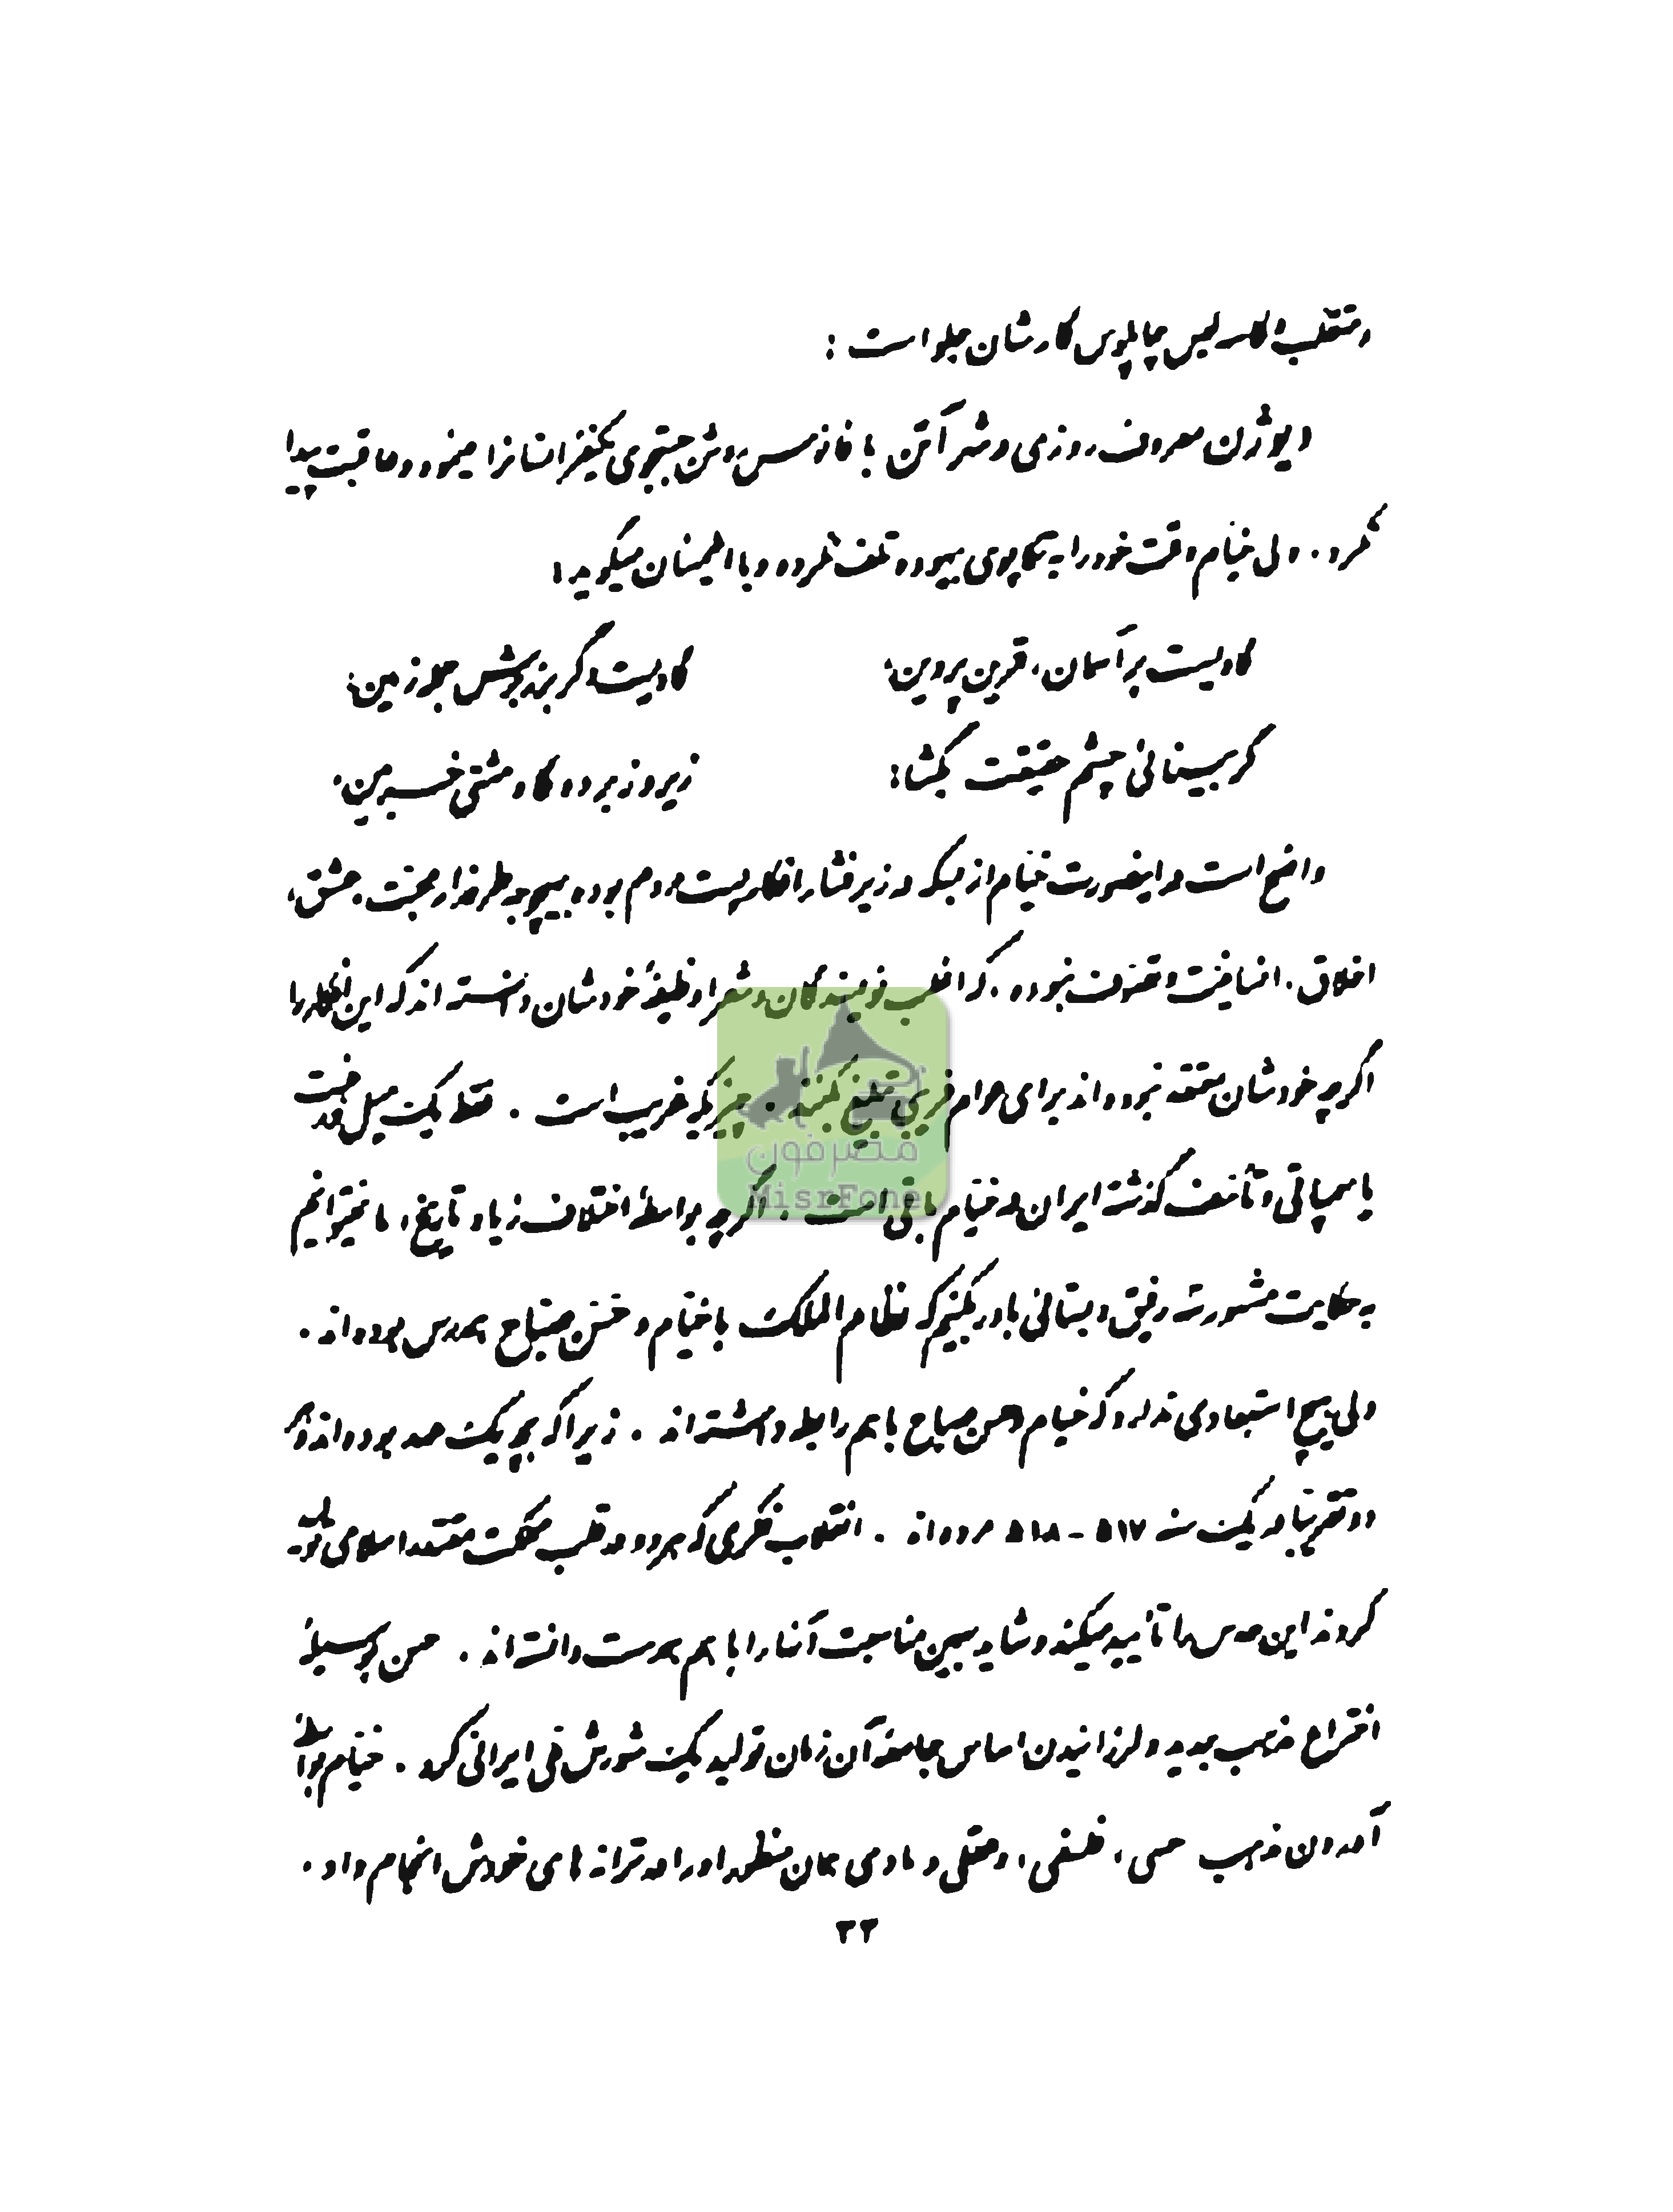 و متقلب و کاسه لیس چاپلوس کارشان جلو است :
دیوژن معروف روزی در شهر آتن با فانوس روشن جستجوی یکنفر انسان را مینمود و عاقبت پیدا
نکرد . ولی خیام وقت خود را به تکاپوی بیهوده تلف نکرده و با اطمینان میگوید :
گاویست بر آسمان ، قرین پروین ،
گاویست دگر بر زبرش جمله زمین ؛
گر بینائی چشم حقیقت بگشا :
زیر و زبر دو گاو مشتی خر بین .
واضح است در اینصورت خیام از بسکه در زیر فشار افکار پست مردم بوده بهیچوجه طرفدار محبت ، عشق ،
اخلاق ، انسانیت و تصوف نبوده ، که اغلب نویسندگان و شعرا وظیفهٔ خودشان دانسته اند که این افکار را
اگرچه خودشان معتقد نبوده اند برای عوام فریبی تبلیغ بکنند . چیزیکه غریب است ، فقط یک میل و رغبت
یا سمپاتی و تأسف گذشتهٔ ایران در خیام باقی است . اگرچه بواسطهٔ اختلاف زیاد تاریخ ، ما نمیتوانیم
به حکایت مشهور سه رفیق دبستانی باور بکنیم که نظام الملک با خیام و حسن صباح همدرس بوده اند .
ولی هیچ استبعادی ندارد که خیام و حسن صباح با هم رابطه داشته اند . زیرا که بچهٔ یک عهد بوده اند و هر
دو تقریبا در یک سنه ۵۱۷ - ۵۱۸ مرده اند . انقلاب فکری که هر دو در قلب مملکت مقتدر اسلامی تولید
کردند این حدس را تأیید میکند و شاید بهمین مناسبت آنها را با هم همدست دانسته اند . حسن بوسیلهٔ
اختراع مذهب جدید و لرزانیدن اساس جامعهٔ آن زمان تولید یک شورش ملی ایرانی کرد . خیام بواسطهٔ
آوردن مذهب حسی ، فلسفی ، و عقلی و مادی همان منظور او را در ترانه های خودش انجام داد .
۳۳
مصرفون
MisrFone